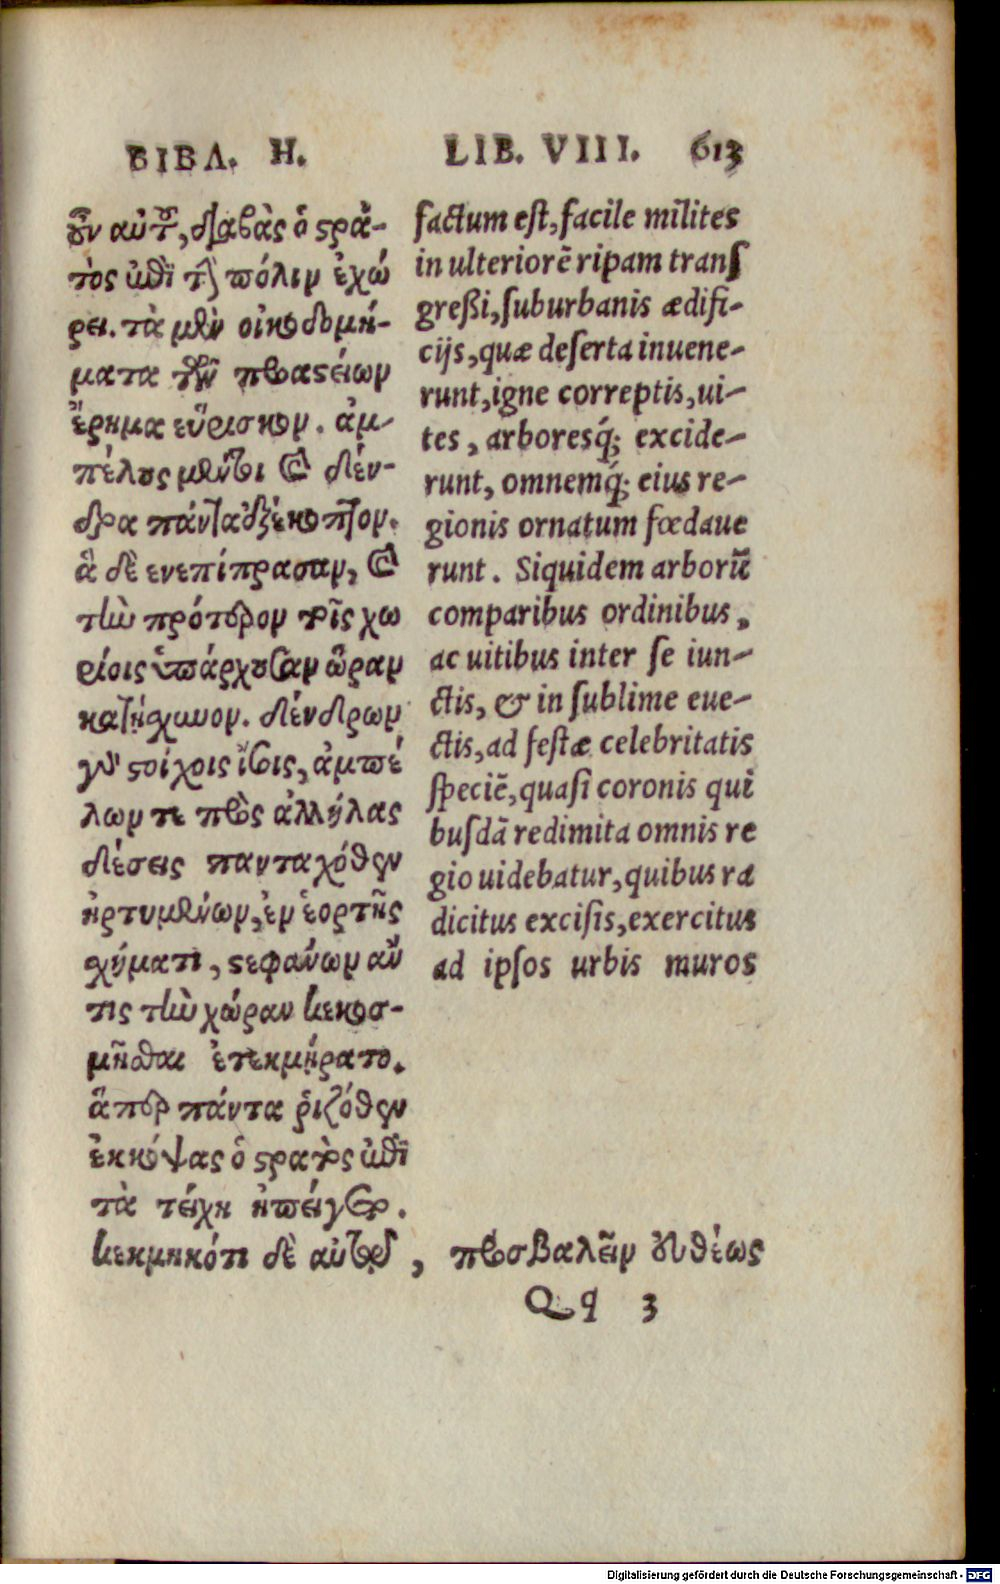 ΒΙΒΛ. Η. LIB. VIII. 613
οὖν αὐτοῦ, διαβὰς ὁ στρα-
τὸς ἐπὶ τὴν πόλιν ἐχώ
ρει. τὰ μὲν οἰκοδομή-
ματα τῶν προαστείων
ἔρημα εὕρισκον. ἀμ-
πέλους μέντοι καὶ δέν-
δρα πάντα ἐξέκοπτον.
ἃ δὲ ἐνεπίπρασαν, καὶ
τὴν πρότερον τοῖς χω
ρίοις ὑπάρχουσαν ὥραν
κατῄσχυνον. δένδρων
ἐν στοίχοις ἴσοις, ἀμπέ
λων τε πρὸς ἀλλήλας
δέσεις πανταχόθεν
ἠρτυμένων, ἐν ἑορτῆς
σχήματι, στεφάνων ἄν
τις τὴν χώραν κεκοσ-
μῆσθαι ἐτεκμήρατο.
ἅπερ πάντα ῥιζόθεν
ἐκκόψας ὁ στρατὸς ἐπὶ
τὰ τείχη ἠπείγετο.
κεκμηκότι δὲ αὐτῷ, προσβαλεῖν εὐθέως
factum est, facile milites
in ulteriorē ripam trans
greßi, suburbanis ædifi-
cijs, quæ deserta inuene-
runt, igne correptis, ui-
tes, arboresq́; excide-
runt, omnemq́; eius re-
gionis ornatum fœdaue
runt. Siquidem arborū
comparibus ordinibus,
ac uitibus inter se iun-
ctis, & in sublime eue-
ctis, ad festæ celebritatis
speciē, quasi coronis qui
busdā redimita omnis re
gio uidebatur, quibus ra
dicitus excisis, exercitus
ad ipsos urbis muros
Qq 3
Digitalisierung gefördert durch die Deutsche Forschungsgemeinschaft - DFG